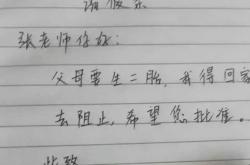 请假条
张老师你好：
父母要生二胎，我得回家
去阻止，希望您批准。
此致